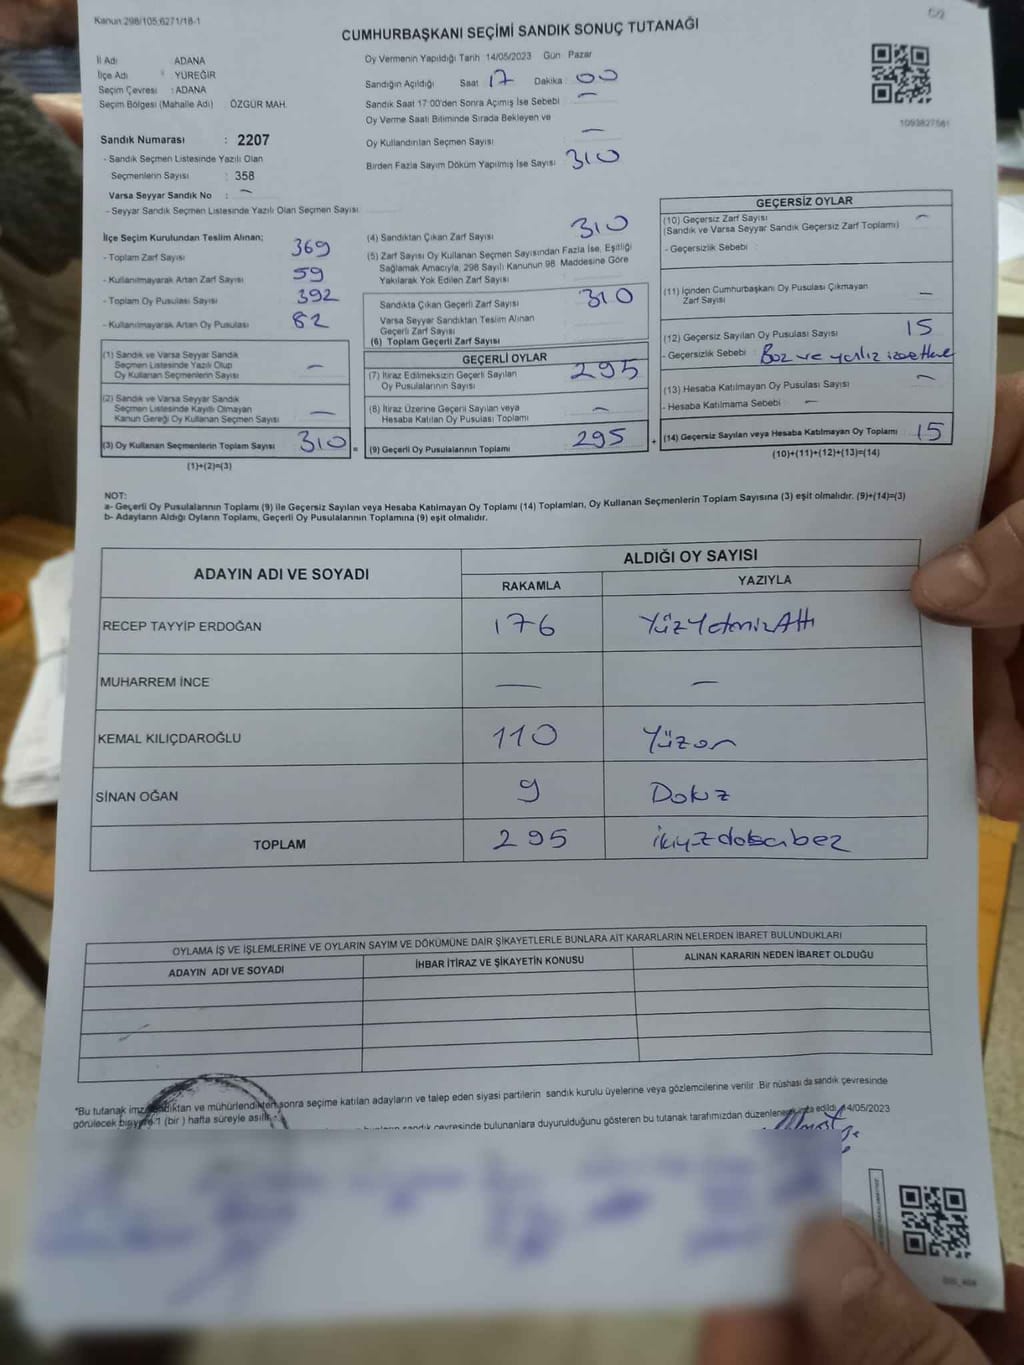 Kanun 298/105,6271/18-1
C/2
CUMHURBAŞKANI SEÇİMİ SANDIK SONUÇ TUTANAĞI
İl Adı ADANA
İlçe Adı : YÜREĞİR
Seçim Çevresi : ADANA
Seçim Bölgesi (Mahalle Adı) ÖZGÜR MAH.
Sandık Numarası : 2207
- Sandık Seçmen Listesinde Yazılı Olan
Seçmenlerin Sayısı : 358
Varsa Seyyar Sandık No : —
- Seyyar Sandık Seçmen Listesinde Yazılı Olan Seçmen Sayısı
Oy Vermenin Yapıldığı Tarih 14/05/2023 Gün Pazar
Sandığın Açıldığı Saat 17 Dakika : 00
Sandık Saat 17:00'den Sonra Açımış İse Sebebi —
Oy Verme Saati Bitiminde Sırada Bekleyen ve
Oy Kullandırılan Seçmen Sayısı —
Birden Fazla Sayım Döküm Yapılmış İse Sayısı 310
1093827561
İlçe Seçim Kurulundan Teslim Alınan;
- Toplam Zarf Sayısı 369
- Kullanılmayarak Artan Zarf Sayısı 59
- Toplam Oy Pusulası Sayısı 392
- Kullanılmayarak Artan Oy Pusulası 82
(1) Sandık ve Varsa Seyyar Sandık
Seçmen Listesinde Yazılı Olup
Oy Kullanan Seçmenlerin Sayısı —
(2) Sandık ve Varsa Seyyar Sandık
Seçmen Listesinde Kayıtlı Olmayan
Kanun Gereği Oy Kullanan Seçmen Sayısı —
(3) Oy Kullanan Seçmenlerin Toplam Sayısı 310 =
(1)+(2)=(3)
(4) Sandıktan Çıkan Zarf Sayısı 310
(5) Zarf Sayısı Oy Kullanan Seçmen Sayısından Fazla İse, Eşitliği
Sağlamak Amacıyla, 298 Sayılı Kanunun 98. Maddesine Göre
Yakılarak Yok Edilen Zarf Sayısı
Sandıkta Çıkan Geçerli Zarf Sayısı 310
Varsa Seyyar Sandıktan Teslim Alınan
Geçerli Zarf Sayısı
(6) Toplam Geçerli Zarf Sayısı
GEÇERLİ OYLAR
(7) İtiraz Edilmeksizin Geçerli Sayılan
Oy Pusulalarının Sayısı 295
(8) İtiraz Üzerine Geçerli Sayılan veya
Hesaba Katılan Oy Pusulası Toplamı —
(9) Geçerli Oy Pusulalarının Toplamı 295 +
GEÇERSİZ OYLAR
(10) Geçersiz Zarf Sayısı —
(Sandık ve Varsa Seyyar Sandık Geçersiz Zarf Toplamı)
- Geçersizlik Sebebi :
(11) İçinden Cumhurbaşkanı Oy Pusulası Çıkmayan
Zarf Sayısı —
(12) Geçersiz Sayılan Oy Pusulası Sayısı 15
- Geçersizlik Sebebi : Boz ve
(13) Hesaba Katılmayan Oy Pusulası Sayısı —
- Hesaba Katılmama Sebebi —
(14) Geçersiz Sayılan veya Hesaba Katılmayan Oy Toplamı 15
(10)+(11)+(12)+(13)=(14)
NOT:
a- Geçerli Oy Pusulalarının Toplamı (9) ile Geçersiz Sayılan veya Hesaba Katılmayan Oy Toplamı (14) Toplamları, Oy Kullanan Seçmenlerin Toplam Sayısına (3) eşit olmalıdır. (9)+(14)=(3)
b- Adayların Aldığı Oyların Toplamı, Geçerli Oy Pusulalarının Toplamına (9) eşit olmalıdır.
ADAYIN ADI VE SOYADI
ALDIĞI OY SAYISI
RAKAMLA YAZIYLA
RECEP TAYYİP ERDOĞAN 176
MUHARREM İNCE — —
KEMAL KILIÇDAROĞLU 110 Yüzon
SİNAN OĞAN 9 Dokuz
TOPLAM 295
OYLAMA İŞ VE İŞLEMLERİNE VE OYLARIN SAYIM VE DÖKÜMÜNE DAİR ŞİKAYETLERLE BUNLARA AİT KARARLARIN NELERDEN İBARET BULUNDUKLARI
ADAYIN ADI VE SOYADI İHBAR İTİRAZ VE ŞİKAYETİN KONUSU ALINAN KARARIN NEDEN İBARET OLDUĞU
*Bu tutanak imzalandıktan ve mühürlendikten sonra seçime katılan adayların ve talep eden siyasi partilerin sandık kurulu üyelerine veya gözlemcilerine verilir. Bir nüshası da sandık çevresinde
görülecek bir yere 1 (bir) hafta süreyle asılır.
sandık çevresinde bulunanlara duyurulduğunu gösteren bu tutanak tarafımızdan düzenlenerek imza edildi. 14/05/2023